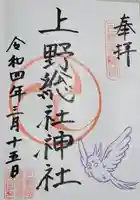 奉拝
上野総社神社
令和四年二月十五日